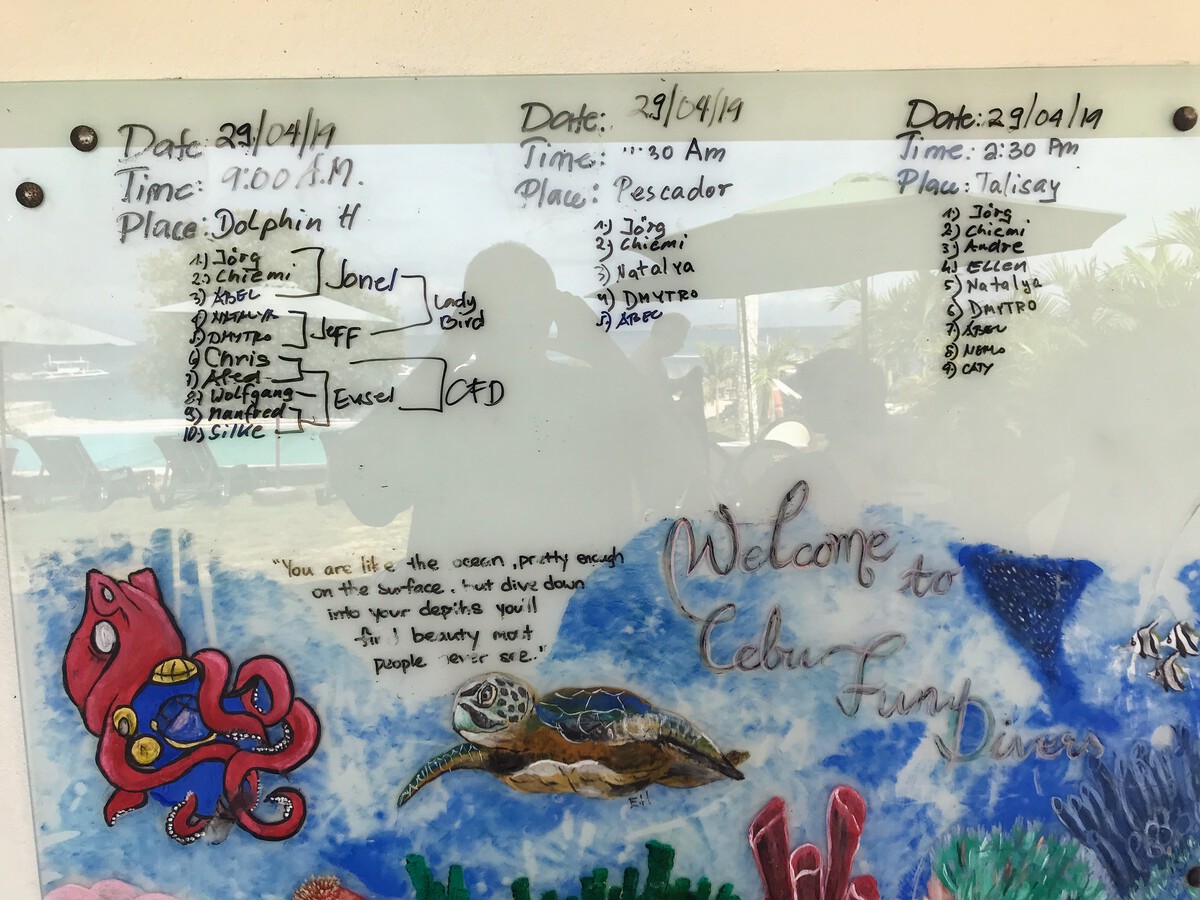 Date: 29/04/19
Time: 9:00 A.M.
Place: Dolphin H
1) Jörg
2) Chiemi
3) ABEL
4) NATALYA
5) DMYTRO
6) Chris
7)
8) Wolfgang
9) Manfred
10) Silke
Jonel
Jeff
Eusel
Lady
Bird
CFD
Date: 29/04/19
Time: :30 Am
Place: Pescador
1) Jörg
2) Chiemi
3) Natalya
4) DMYTRO
5) ABEL
Date: 29/04/19
Time: 2:30 Pm
Place: Talisay
1) Jörg
2) Chiemi
3) Andre
4) ELLEN
5) Natalya
6) DMYTRO
7) ABEL
8) NEMO
9) CATY
"You are like the ocean, pretty enough
on the surface, but dive down
into your depths you'll
find beauty most
people never see."
Welcome
to
Cebu
Funy
Divers
EH